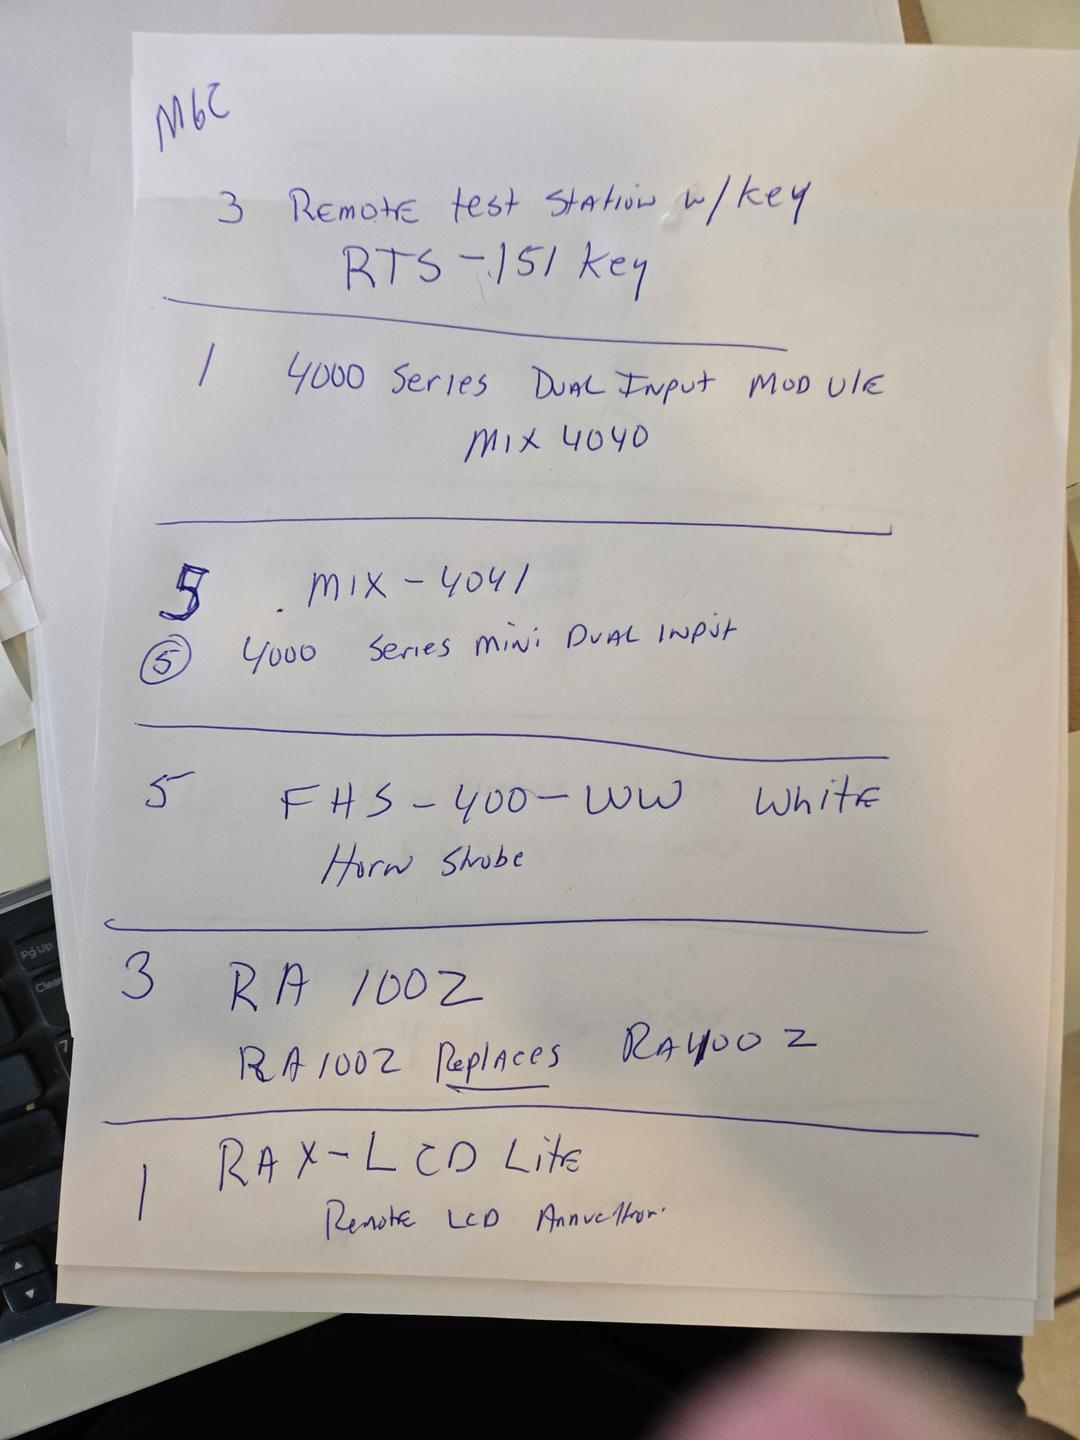 MGC
3 Remote test Station w/key
RTS-151 key
1 4000 Series Dual Input Module
MIX 4040
5 MIX-4041
5 4000 Series Mini Dual Input
5 FHS-400-WW White
Horn Strobe
3 RA 100Z
RA100Z Replaces RA400Z
1 RAX-LCD Lite
Remote LCD
Pg Up
Clear
7